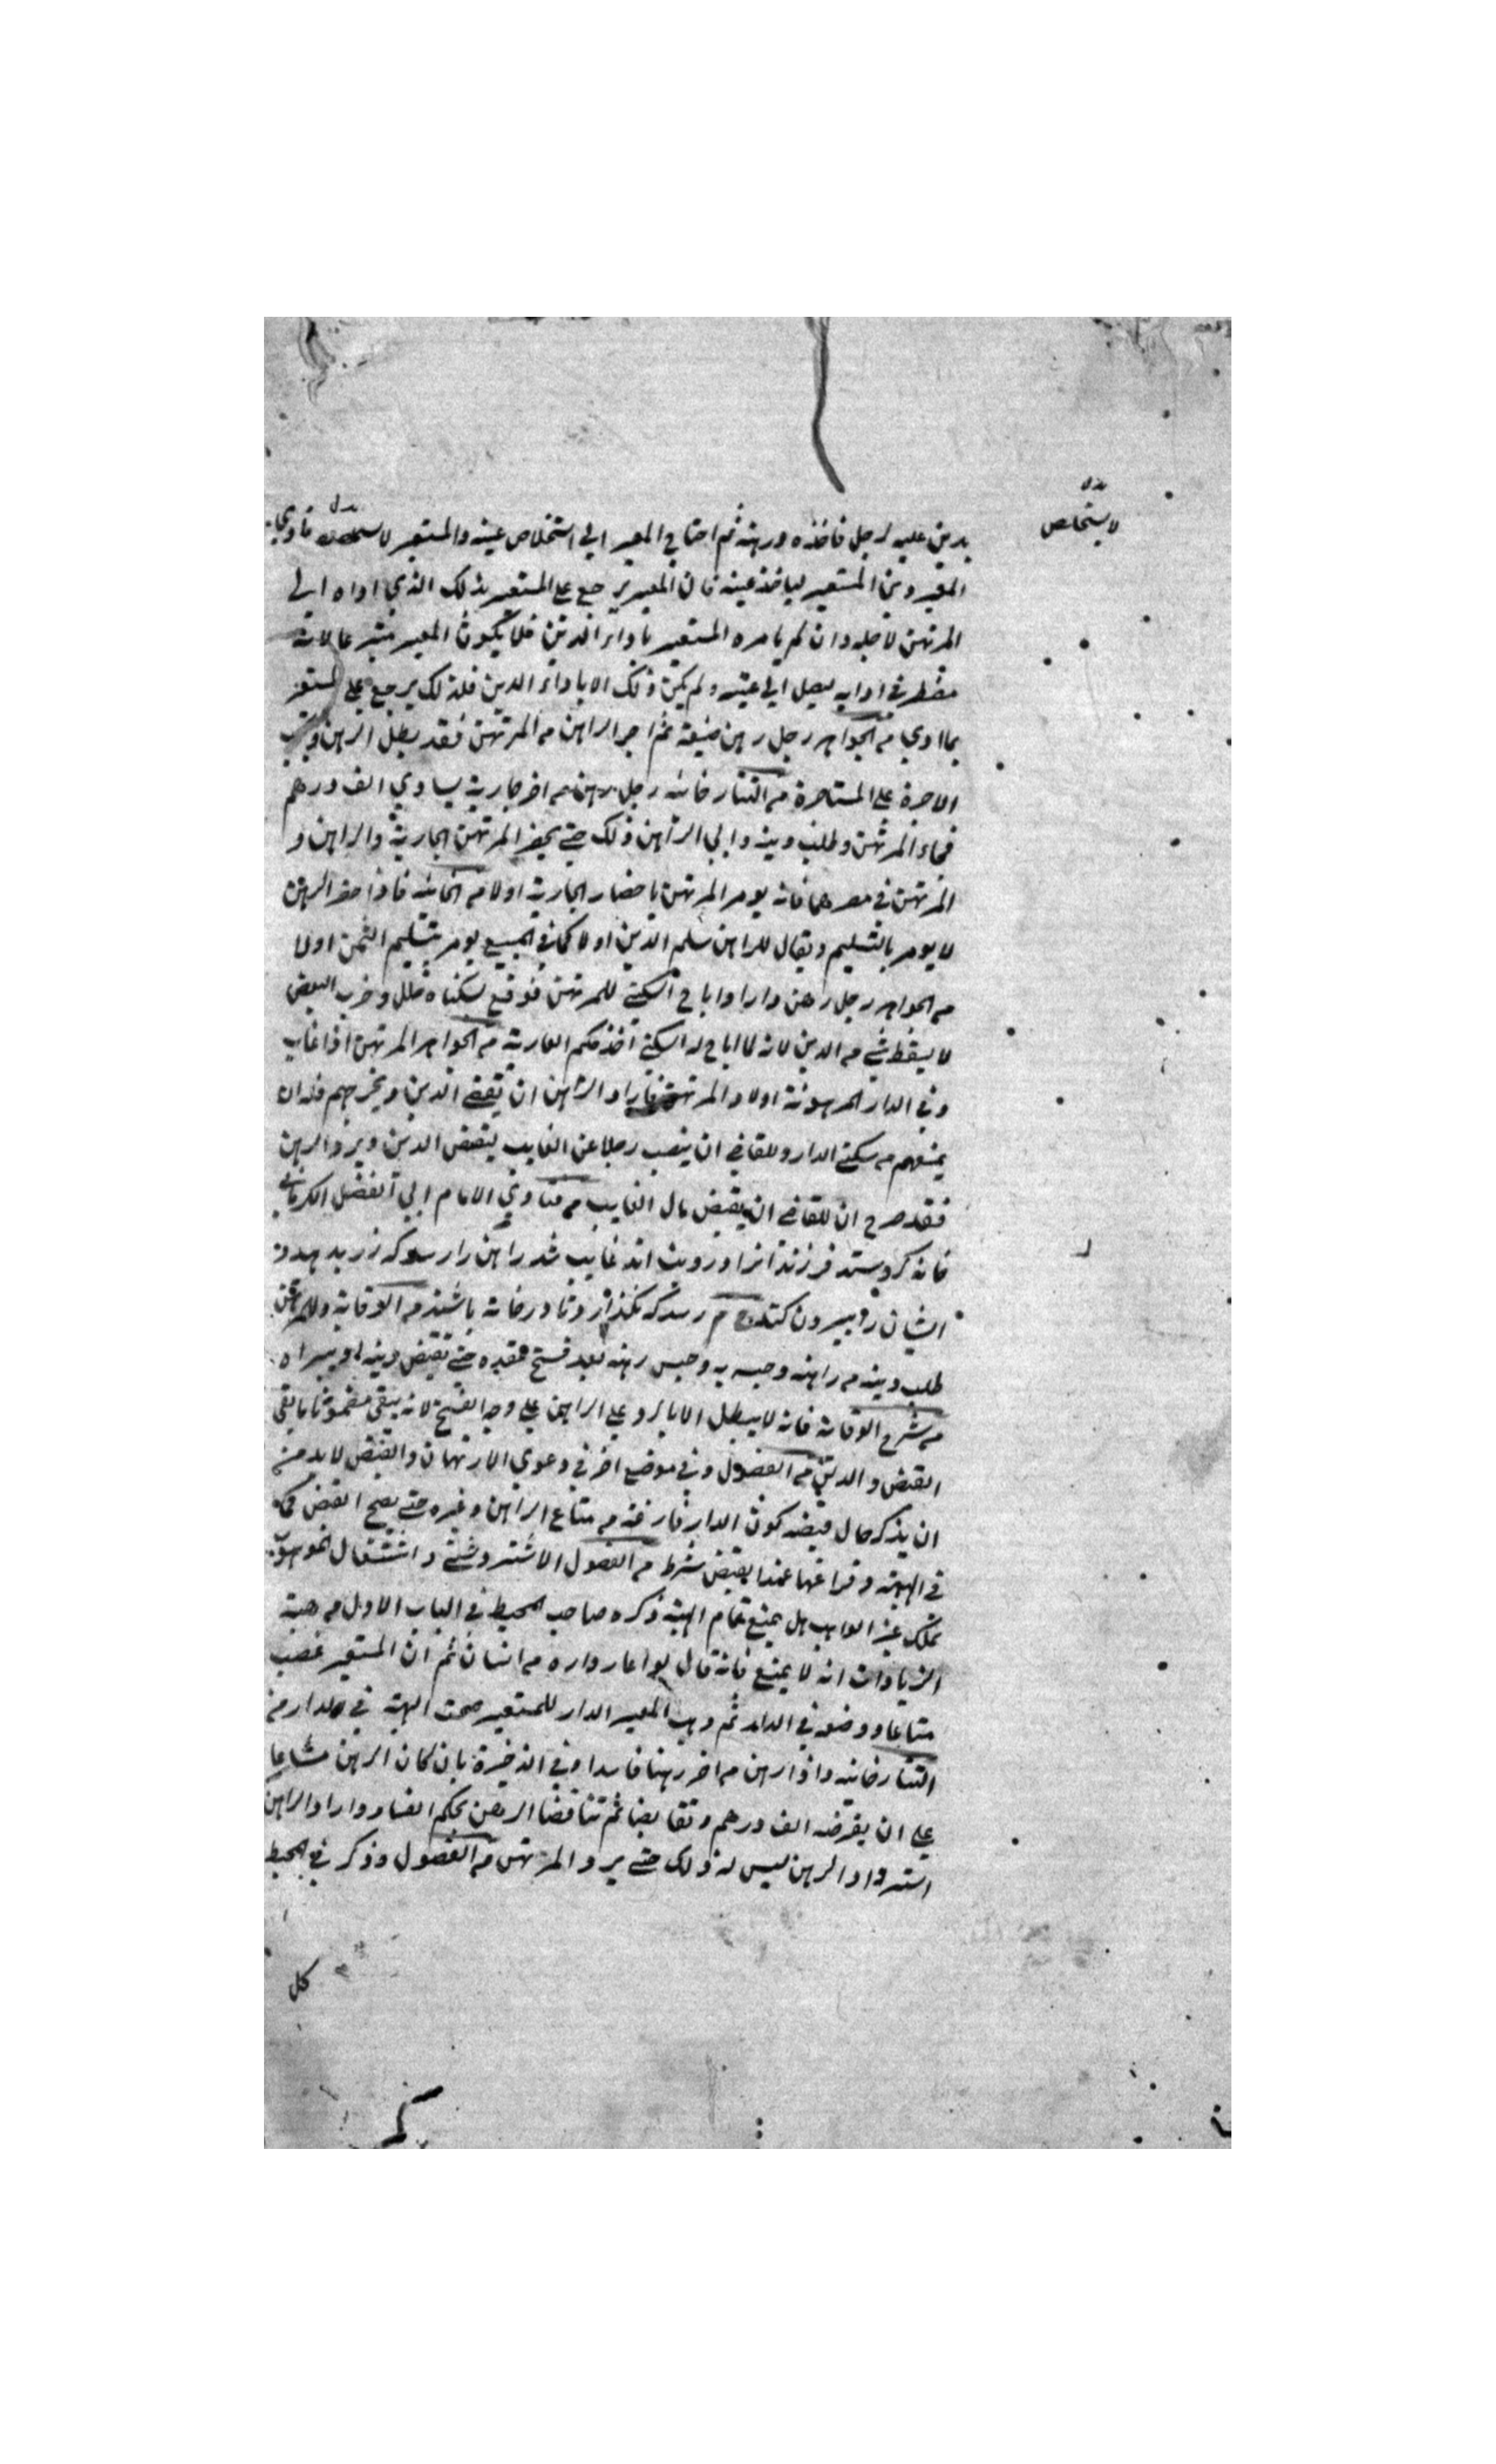 بدل
لا يستخلص
بدين عليه لرجل فاخذه ورهنه ثم احتاج المعير الي استخلاص عينه والمستعير لا يستخلصه فادي
المعير دين المستعير لياخذ عينه فان المعير يرجع علي المستعير بذلك الذي اداه الي
المرتهن لاجله وان لم يامره المستعير باداء الدين فلا يكون المعير متبرعا لانه
مضطر في ادايه ليصل الي عينه ولم يكن ذلك الا باداء الدين فلذلك يرجع علي المستعير
بما ادي من الجواهر رجل رهن ضيعة ثم اجر الراهن من المرتهن فقد بطل الرهن ويجب
الاجرة علي المستاجرة من التتارخانيه رجل رهن من اخر جارية يساوي الف درهم
فجاء المرتهن وطلب دينه وابي الراهن ذلك حتي يحضر المرتهن الجارية والراهن و
المرتهن في مصرهما فانه يومر المرتهن باحضار الجارية اولا من الخانيه فاذا حضر الرهن
لا يومر بالتسليم ويقال للراهن سلم الدين اولا كما في المبيع يومر بتسليم الثمن اولا
من الجواهر رجل رهن دارا واباح السكني للمرتهن فوقع بسكناه خلل وخرب البعض
لا يسقط شي من الدين لانه لما اباح له السكني اخذ حكم العارية من الجواهر المرتهن اذا غاب
وفي الدار المرهونة اولاد المرتهن فاراد الراهن ان يقضي الدين ويخرجهم فله ان
يمنعهم من سكني الدار وللقاضي ان ينصب رجلا عن الغايب ليقبض الدين ويرد الرهن
فقد صرح ان للقاضي ان يقبض مال الغايب من فتاوي الامام ابي الفضل الكرماني
خانه كرو ستد فرزندانرا درويند اند غايب شد راهن را رسد كه زر بدهد و
ايشان را بيرون كند م رسد كه نكذارد تا در خانه باشند من الوقاية وللمرتهن
طلب دينه من راهنه وحبسه به وحبس رهنه بعد فسخ عقده حتي يقبض دينه او يبراه
من شرح الوقاية فانه لا يبطل الا بالرد علي الراهن علي وجه الفسخ لانه يبقي مضمونا ما بقي
القبض والدين من الفصول وفي موضع اخر في دعوي الارتهان والقبض لا بد من
ان يذكر حال قبضه كون الدار فارغة من متاع الراهن وغيره حتي يصح القبض كما
في الهبة وفراغها عند القبض شرط من الفصول الاشتروشني واشتغال الموهوب
بملك غير الواهب هل يمنع تمام الهبة ذكره صاحب المحيط في الباب الاول من هبة
الزيادات انه لا يمنع فانه قال لو اعار داره من انسان ثم ان المستعير غصب
متاعا ووضعه في الدار ثم وهب المعير الدار للمستعير صحت الهبة في الدار من
التتارخانيه واذا رهن من اخر رهنا فاسدا وفي الذخيرة بان كان الرهن مشاعا
علي ان يقرضه الف درهم وتقابضا ثم تناقضا الرهن بحكم الفساد واراد الراهن
استرداد الرهن ليس له ذلك حتي يرد المرتهن من الفصول وذكر في المحيط
كل